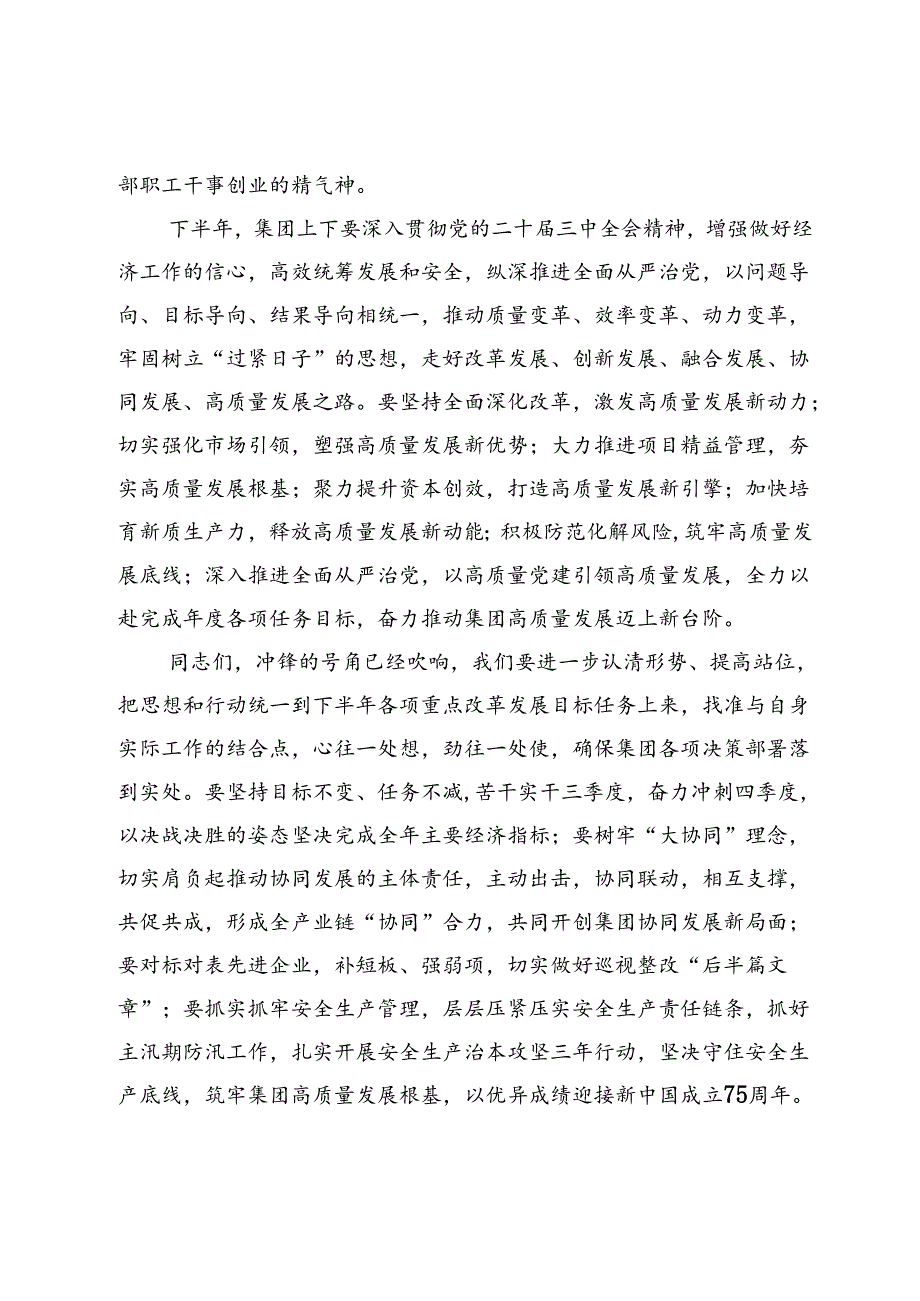 部职工干事创业的精气神。
下半年，集团上下要深入贯彻党的二十届三中全会精神，增强做好经
济工作的信心，高效统筹发展和安全，纵深推进全面从严治党，以问题导
向、目标导向、结果导向相统一，推动质量变革、效率变革、动力变革，
牢固树立“过紧日子”的思想，走好改革发展、创新发展、融合发展、协
同发展、高质量发展之路。要坚持全面深化改革，激发高质量发展新动力；
切实强化市场引领，塑强高质量发展新优势；大力推进项目精益管理，夯
实高质量发展根基；聚力提升资本创效，打造高质量发展新引擎；加快培
育新质生产力，释放高质量发展新动能；积极防范化解风险,筑牢高质量发
展底线；深入推进全面从严治党，以高质量党建引领高质量发展，全力以
赴完成年度各项任务目标，奋力推动集团高质量发展迈上新台阶。
同志们，冲锋的号角已经吹响，我们要进一步认清形势、提高站位，
把思想和行动统一到下半年各项重点改革发展目标任务上来，找准与自身
实际工作的结合点，心往一处想，劲往一处使，确保集团各项决策部署落
到实处。要坚持目标不变、任务不减,苦干实干三季度，奋力冲刺四季度，
以决战决胜的姿态坚决完成全年主要经济指标；要树牢“大协同”理念，
切实肩负起推动协同发展的主体责任，主动出击，协同联动，相互支撑，
共促共成，形成全产业链“协同”合力，共同开创集团协同发展新局面；
要对标对表先进企业，补短板、强弱项，切实做好巡视整改“后半篇文
章”；要抓实抓牢安全生产管理，层层压紧压实安全生产责任链条，抓好
主汛期防汛工作，扎实开展安全生产治本攻坚三年行动，坚决守住安全生
产底线，筑牢集团高质量发展根基，以优异成绩迎接新中国成立75周年。